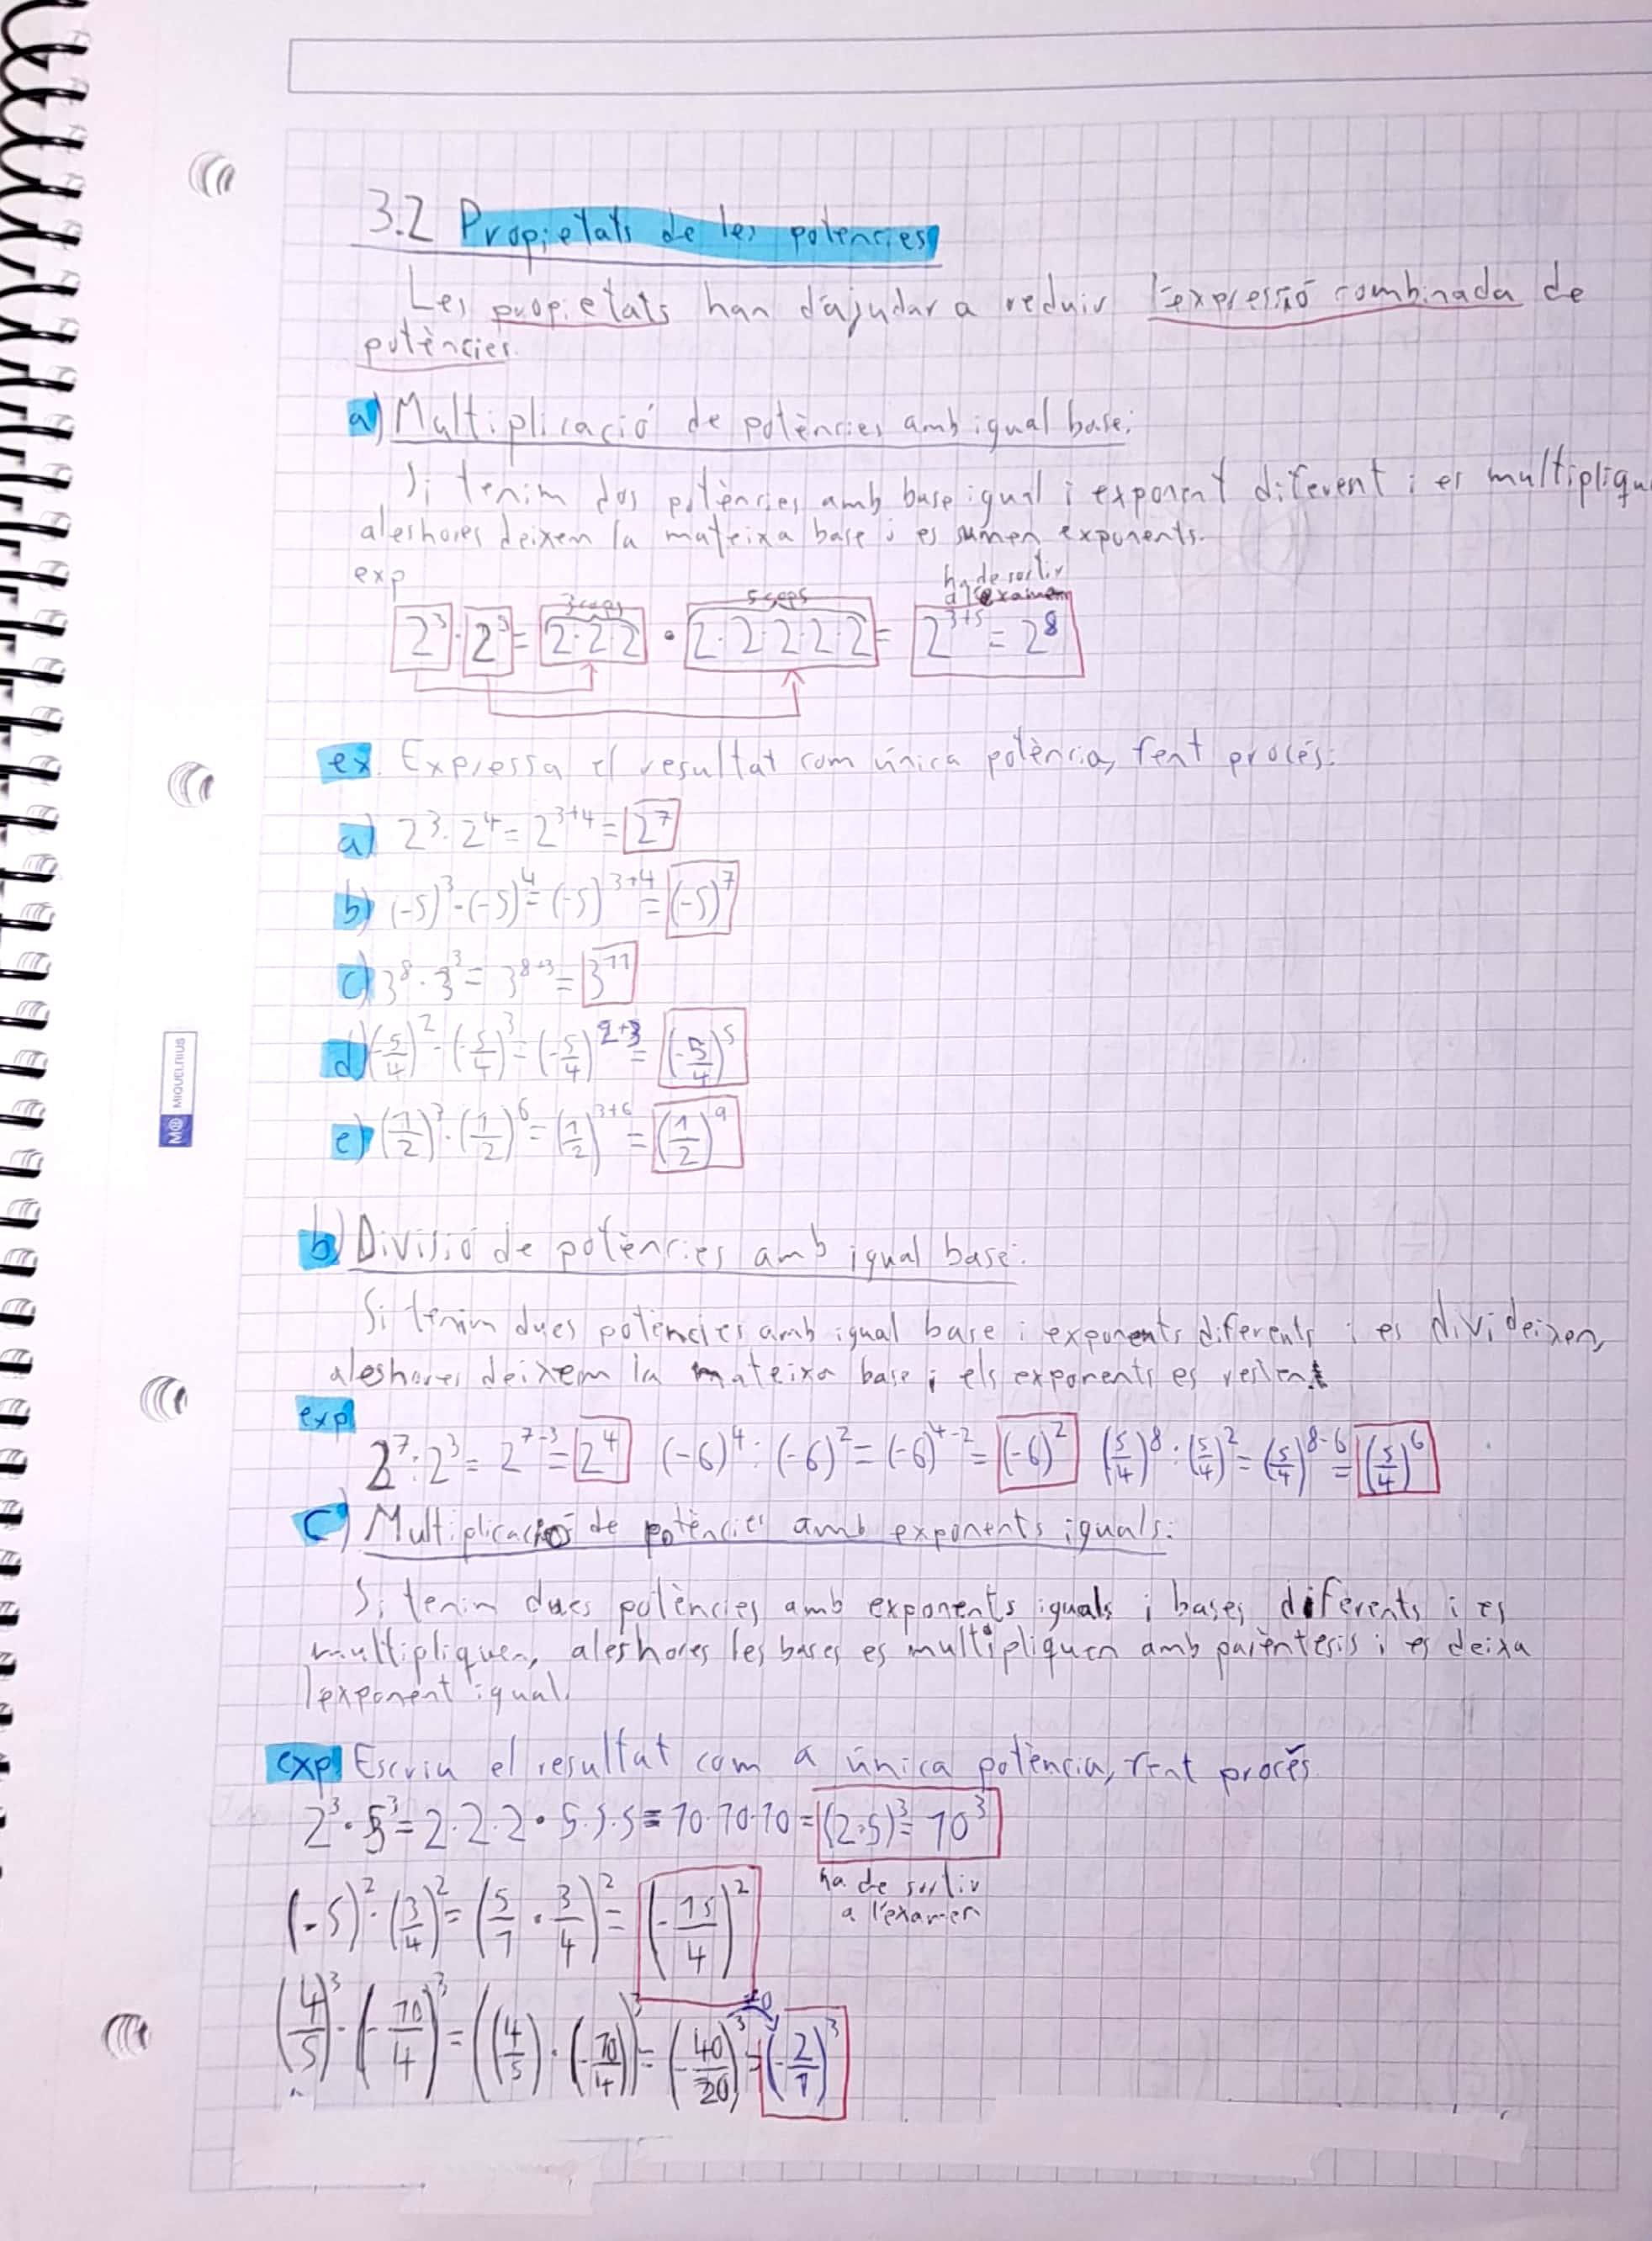 3.2 Propietats de les potencies
Les propietats han d'ajudar a reduir l'expressió combinada de
potències.
a) Multiplicació de potències amb igual base:
Si tenim dos potències amb base igual i exponent diferent i es multipliqu
aleshores deixem la mateixa base i es sumen exponents.
exp
ha de sortir
a l'examen
3 cops 5 cops
2³ · 2⁵ = 2·2·2 · 2·2·2·2·2 = 2³⁺⁵ = 2⁸
ex. Expressa el resultat com única potència, fent procés:
a) 2³ · 2⁴ = 2³⁺⁴ = 2⁷
b) (-5)³ · (-5)⁴ = (-5)³⁺⁴ = (-5)⁷
c) 3⁸ · 3³ = 3⁸⁺³ = 3¹¹
d) (-5/4)² · (-5/4)³ = (-5/4)²⁺³ = (-5/4)⁵
e) (1/2)³ · (1/2)⁶ = (1/2)³⁺⁶ = (1/2)⁹
MIQUELRIUS
b) Divisió de potències amb igual base:
Si tenim dues potències amb igual base i exponents diferents i es divideixen,
aleshores deixem la mateixa base i els exponents es resten.
exp
2⁷ : 2³ = 2⁷⁻³ = 2⁴ (-6)⁴ : (-6)² = (-6)⁴⁻² = (-6)² (5/4)⁸ : (5/4)² = (5/4)⁸⁻⁶ = (5/4)⁶
c) Multiplicació de potències amb exponents iguals:
Si tenim dues potències amb exponents iguals i bases diferents i es
multipliquen, aleshores les bases es multipliquen amb parèntesis i es deixa
l'exponent igual.
exp Escriu el resultat com a única potència, fent procés
2³ · 5³ = 2·2·2 · 5·5·5 = 10·10·10 = (2·5)³ = 10³
ha de sortir
a l'examen
(-5)² · (3/4)² = (5/1 · 3/4)² = (-15/4)²
(4/5)³ · (-10/4)³ = ((4/5) · (-10/4))³ = (-40/20)³ = (-2/1)³